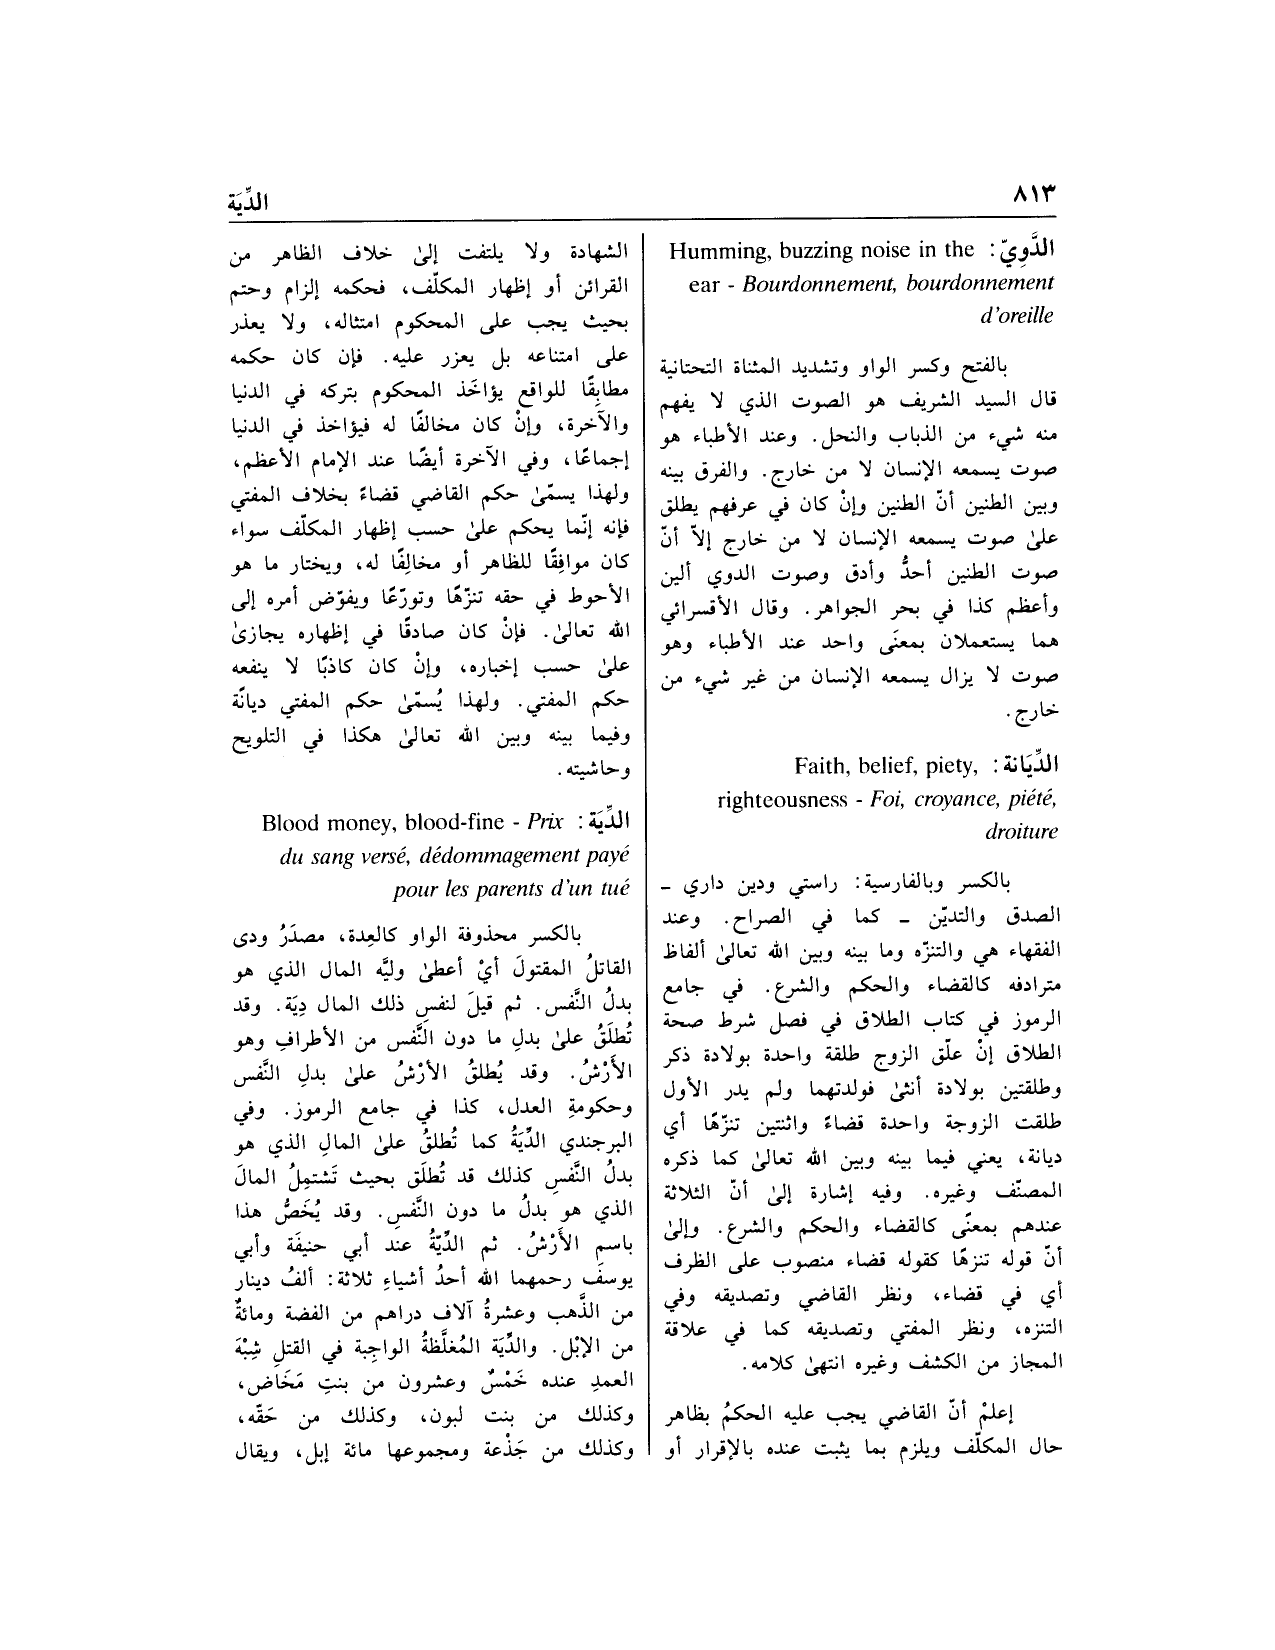 ٨١٣
الدِّيَة
الدَّوِيّ: Humming, buzzing noise in the
ear - Bourdonnement, bourdonnement
d'oreille
بالفتح وكسر الواو وتشديد المثناة التحتانية
قال السيد الشريف هو الصوت الذي لا يفهم
منه شيء من الذباب والنحل. وعند الأطباء هو
صوت يسمعه الإنسان لا من خارج. والفرق بينه
وبين الطنين أنّ الطنين وإنْ كان في عرفهم يطلق
علىٰ صوت يسمعه الإنسان لا من خارج إلاّ أنّ
صوت الطنين أحدُّ وأدق وصوت الدوي ألين
وأعظم كذا في بحر الجواهر. وقال الأقسرائي
هما يستعملان بمعنًى واحد عند الأطباء وهو
صوت لا يزال يسمعه الإنسان من غير شيء من
خارج.
الدِّيَانة: Faith, belief, piety,
righteousness - Foi, croyance, piété,
droiture
بالكسر وبالفارسية: راستي ودين داري –
الصدق والتديّن – كما في الصراح. وعند
الفقهاء هي والتنزّه وما بينه وبين الله تعالىٰ ألفاظ
مترادفه كالقضاء والحكم والشرع. في جامع
الرموز في كتاب الطلاق في فصل شرط صحة
الطلاق إنْ علّق الزوج طلقة واحدة بولادة ذكر
وطلقتين بولادة أنثىٰ فولدتهما ولم يدر الأول
طلقت الزوجة واحدة قضاءً واثنتين تنزّهًا أي
ديانة، يعني فيما بينه وبين الله تعالىٰ كما ذكره
المصنّف وغيره. وفيه إشارة إلىٰ أنّ الثلاثة
عندهم بمعنًى كالقضاء والحكم والشرع. وإلىٰ
أنّ قوله تنزهًا كقوله قضاء منصوب على الظرف
أي في قضاء، ونظر القاضي وتصديقه وفي
التنزه، ونظر المفتي وتصديقه كما في علاقة
المجاز من الكشف وغيره انتهىٰ كلامه.
إعلمْ أنّ القاضي يجب عليه الحكمُ بظاهر
حال المكلّف ويلزم بما يثبت عنده بالإقرار أو
الشهادة ولا يلتفت إلىٰ خلاف الظاهر من
القرائن أو إظهار المكلّف، فحكمه إلزام وحتم
بحيث يجب على المحكوم امتثاله، ولا يعذر
على امتناعه بل يعزر عليه. فإن كان حكمه
مطابِقًا للواقع يؤاخَذ المحكوم بتركه في الدنيا
والآخرة، وإنْ كان مخالفًا له فيؤاخذ في الدنيا
إجماعًا، وفي الآخرة أيضًا عند الإمام الأعظم،
ولهذا يسمّىٰ حكم القاضي قضاءً بخلاف المفتي
فإنه إنّما يحكم علىٰ حسب إظهار المكلّف سواء
كان موافِقًا للظاهر أو مخالِفًا له، ويختار ما هو
الأحوط في حقه تنزّهًا وتورّعًا ويفوّض أمره إلى
الله تعالىٰ. فإنْ كان صادقًا في إظهاره يجازىٰ
علىٰ حسب إخباره، وإنْ كان كاذبًا لا ينفعه
حكم المفتي. ولهذا يُسمّىٰ حكم المفتي ديانًة
وفيما بينه وبين الله تعالىٰ هكذا في التلويح
وحاشيته.
الدِّيَة: Blood money, blood-fine - Prix
du sang versé, dédommagement payé
pour les parents d'un tué
بالكسر محذوفة الواو كالعِدة، مصدَرُ ودى
القاتلُ المقتولَ أيْ أعطىٰ وليَّه المال الذي هو
بدلُ النَّفس. ثم قيلَ لنفسِ ذلك المال دِيَة. وقد
تُطلَقُ علىٰ بدلِ ما دون النَّفس من الأطرافِ وهو
الأَرْشُ. وقد يُطلقُ الأرْشُ علىٰ بدلِ النَّفس
وحكومةِ العدل، كذا في جامع الرموز. وفي
البرجندي الدِّيَةُ كما تُطلقُ علىٰ المالِ الذي هو
بدلُ النَّفسِ كذلك قد تُطلَق بحيث تَشتمِلُ المالَ
الذي هو بدلُ ما دون النَّفسِ. وقد يُخَصُّ هذا
باسمِ الأَرْشُ. ثم الدِّيّةُ عند أبي حنيفَة وأبي
يوسفَ رحمهما الله أحدُ أشياءِ ثلاثة: ألفُ دينار
من الذَّهب وعشرةُ آلاف دراهم من الفضة ومائةٌ
من الإبْل. والدِّيَة المُغلَّظةُ الواجِبة في القتلِ شِبْهَ
العمدِ عنده خَمْسٌ وعشرون من بنتِ مَخَاض،
وكذلك من بنت لبون، وكذلك من حَقّه،
وكذلك من جَذْعة ومجموعها مائة إبل، ويقال